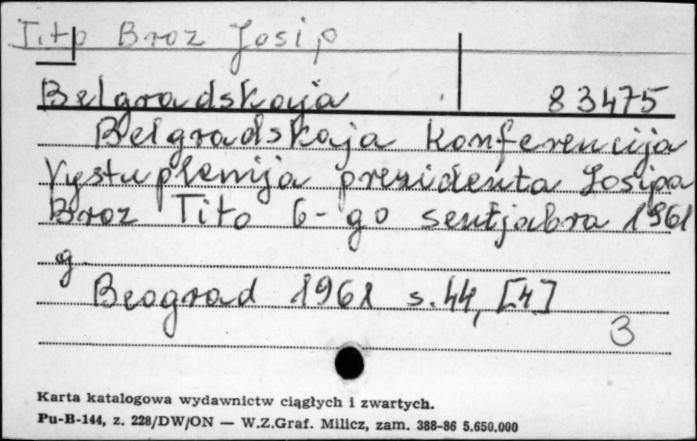 Tito Broz Josip
Belgradskaja 83475
Belgradskaja konferencija
Vystuplenija prezidenta Josipa
Broz Tito 6-go sentjabra 1961
g.
Beograd 1961 s. 44, [4]
3
Karta katalogowa wydawnictw ciągłych i zwartych.
Pu-B-144, z. 228/DW/ON — W.Z.Graf. Milicz, zam. 388-86 5.650.000